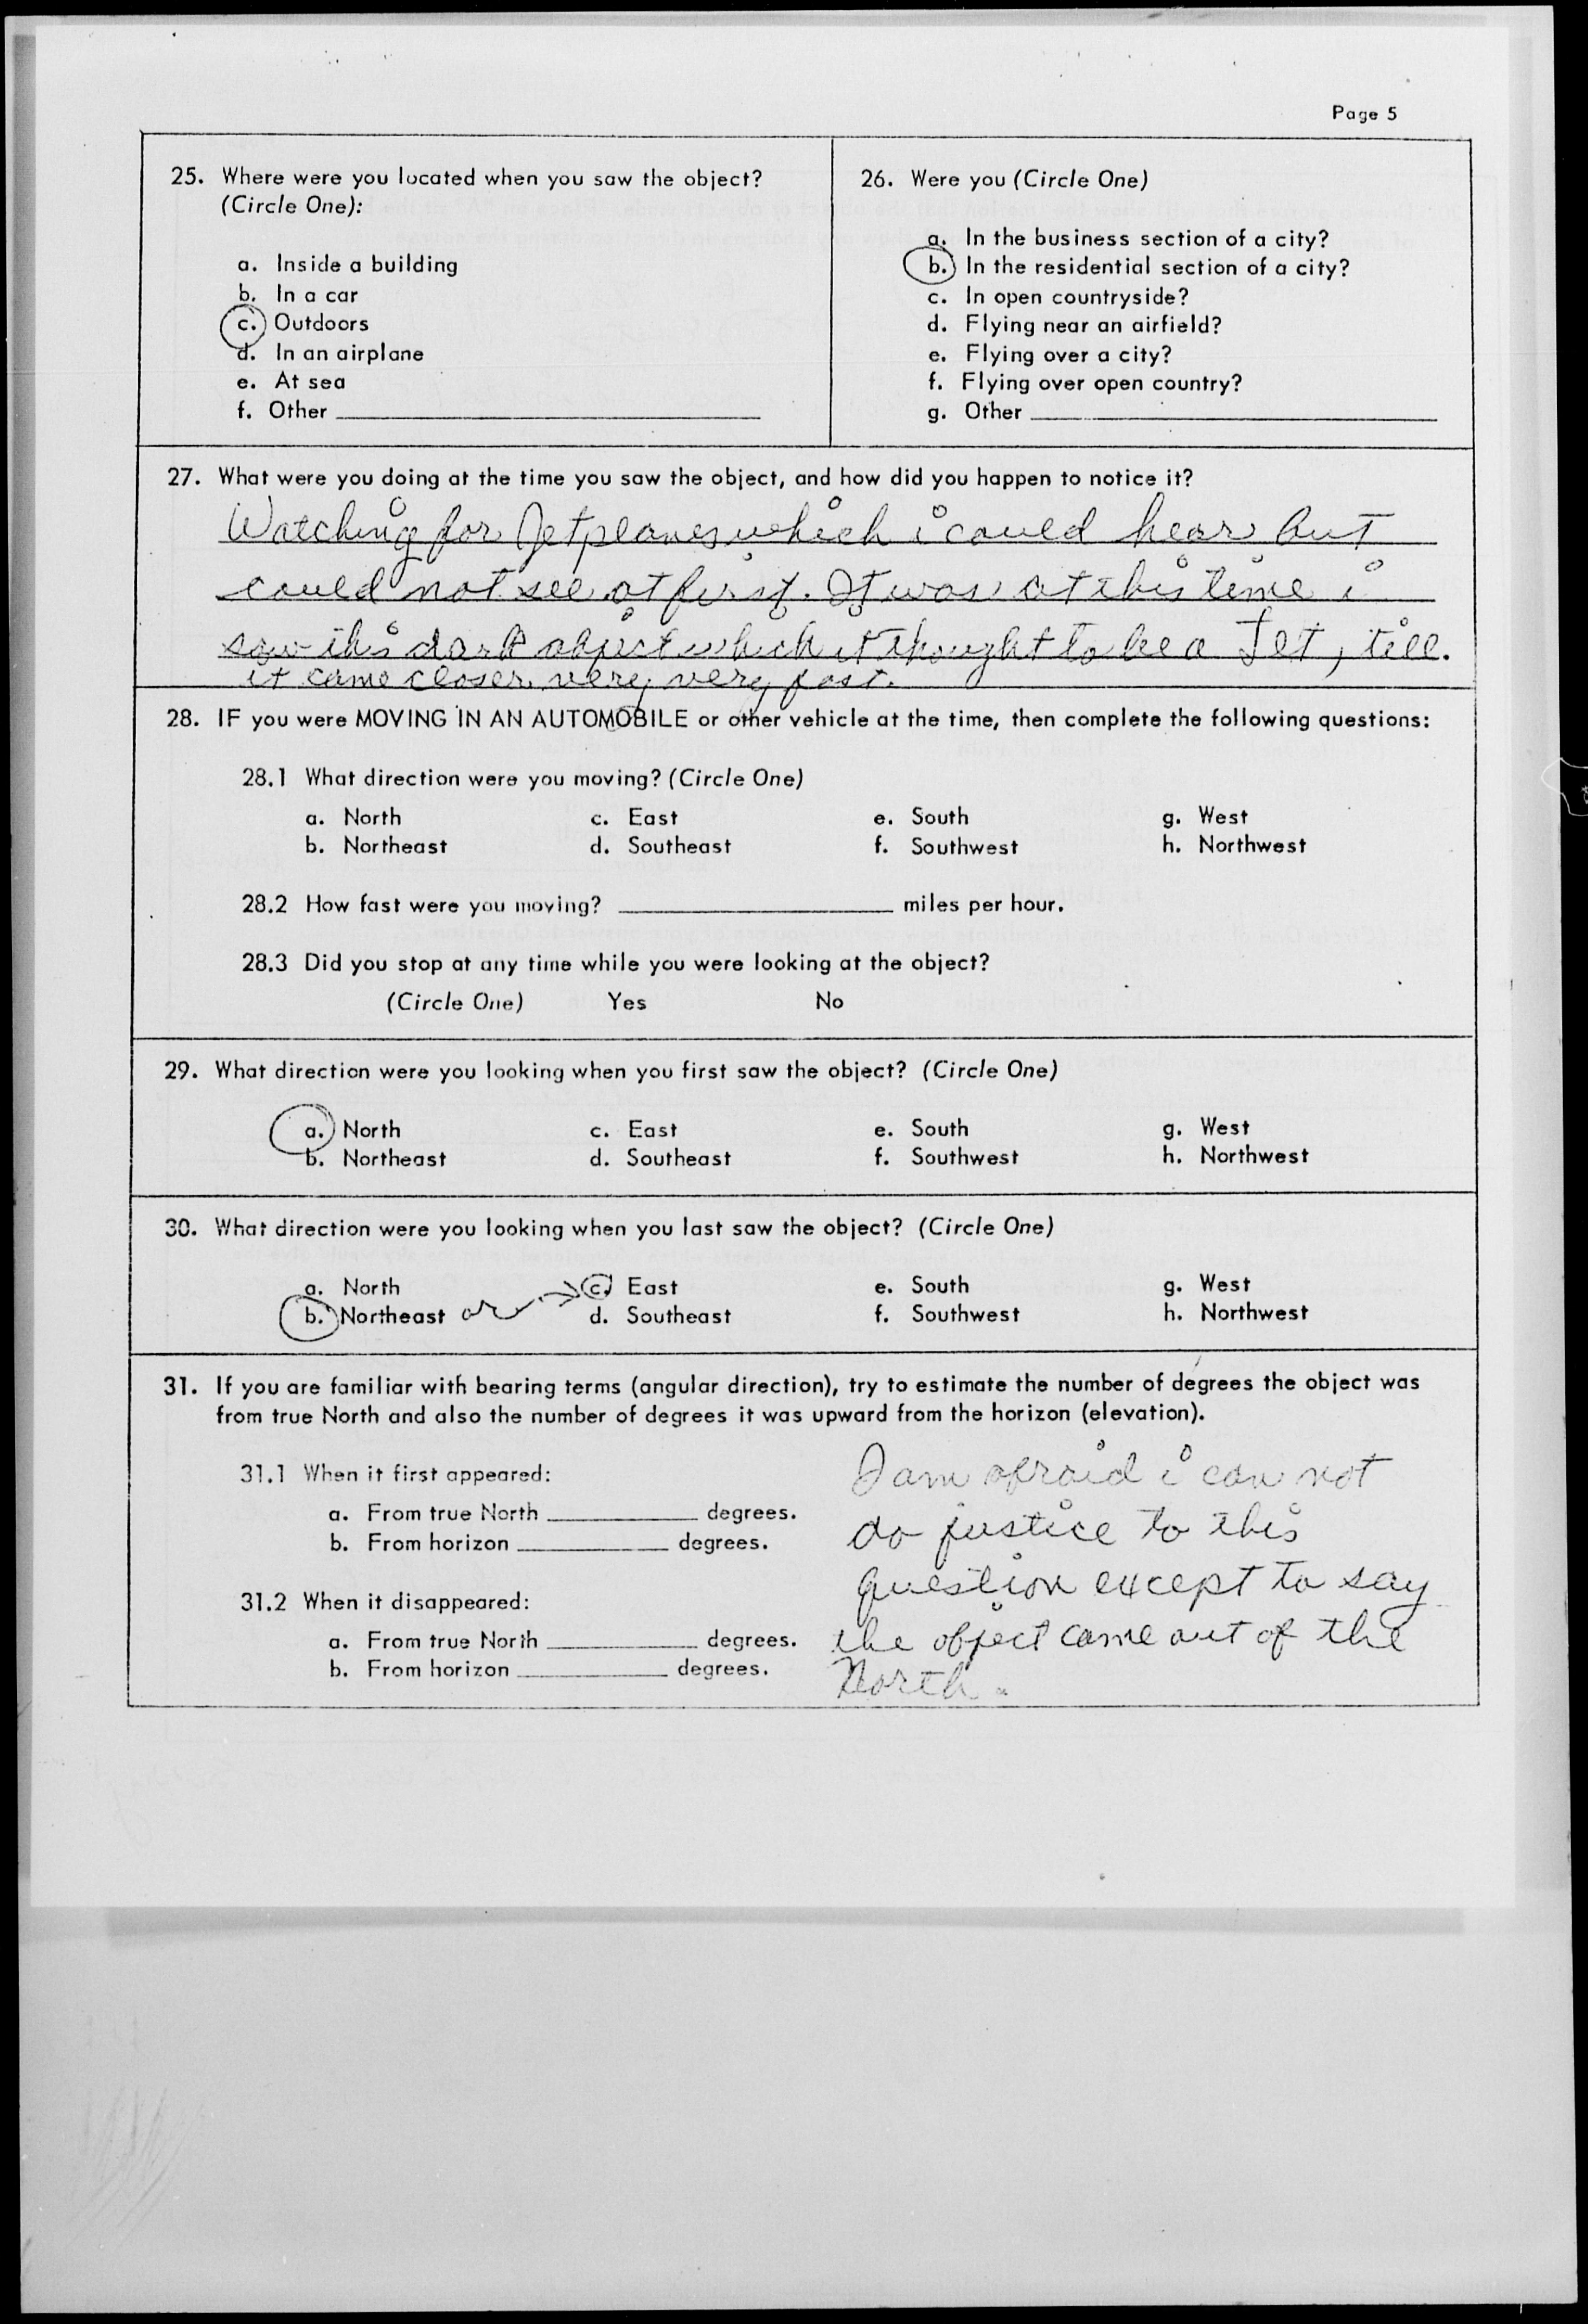 Page 5
25. Where were you located when you saw the object?
(Circle One):
a. Inside a building
b. In a car
c. Outdoors
d. In an airplane
e. At sea
f. Other
26. Were you (Circle One)
a. In the business section of a city?
b. In the residential section of a city?
c. In open countryside?
d. Flying near an airfield?
e. Flying over a city?
f. Flying over open country?
g. Other
27. What were you doing at the time you saw the object, and how did you happen to notice it?
Watching for Jetplanes which i could hear but
could not see at first. It was at this time i
saw this dark object which it thought to be a Jet, till.
it came closer very, very fast.
28. IF you were MOVING IN AN AUTOMOBILE or other vehicle at the time, then complete the following questions:
28.1 What direction were you moving? (Circle One)
a. North c. East e. South g. West
b. Northeast d. Southeast f. Southwest h. Northwest
28.2 How fast were you moving? miles per hour.
28.3 Did you stop at any time while you were looking at the object?
(Circle One) Yes No
29. What direction were you looking when you first saw the object? (Circle One)
a. North c. East e. South g. West
b. Northeast d. Southeast f. Southwest h. Northwest
30. What direction were you looking when you last saw the object? (Circle One)
a. North c. East e. South g. West
b. Northeast or d. Southeast f. Southwest h. Northwest
31. If you are familiar with bearing terms (angular direction), try to estimate the number of degrees the object was
from true North and also the number of degrees it was upward from the horizon (elevation).
31.1 When it first appeared:
a. From true North degrees.
b. From horizon degrees.
31.2 When it disappeared:
a. From true North degrees.
b. From horizon degrees.
I am afraid i can not
do justice to this
question except to say
the object came out of the
North.